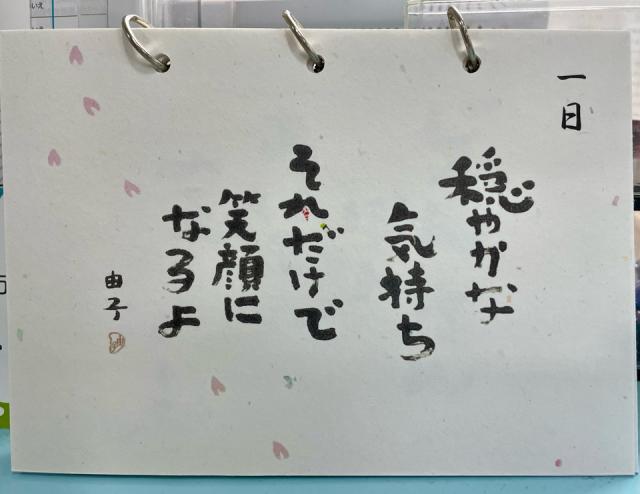 一日
穏やかな
気持ち
それだけで
笑顔に
なるよ
由子